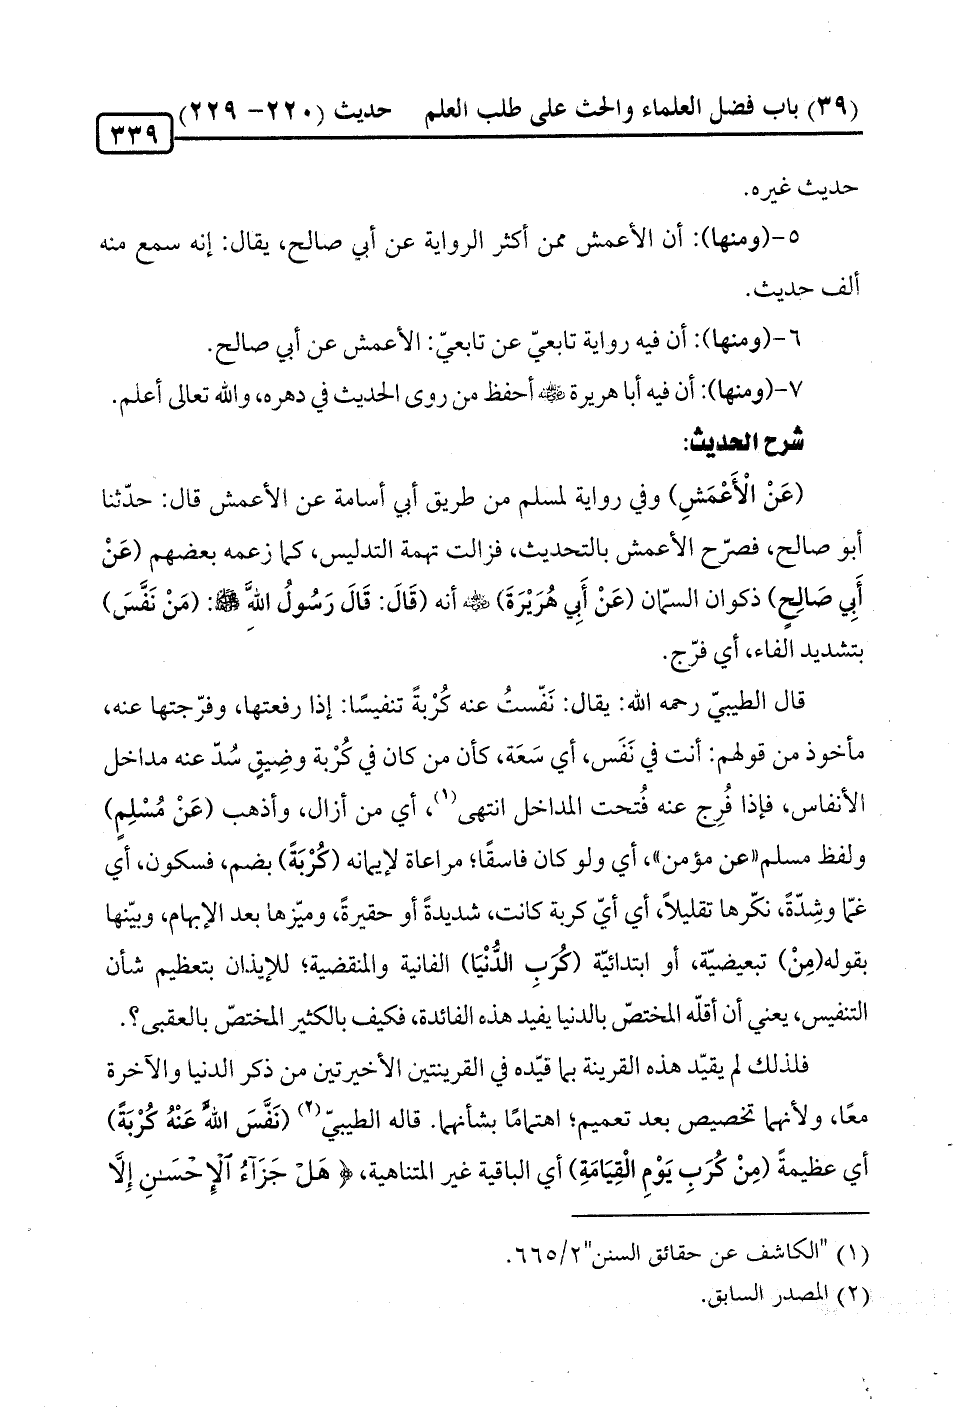 (٣٩) باب فضل العلماء والحث على طلب العلم حديث (٢٢٠- ٢٢٩)
٣٣٩
حديث غيره.
٥-(ومنها): أن الأعمش ممن أكثر الرواية عن أبي صالح، يقال: إنه سمع منه
ألف حديث.
٦-(ومنها): أن فيه رواية تابعيّ عن تابعيّ: الأعمش عن أبي صالح.
٧-(ومنها): أن فيه أبا هريرة رضي الله عنه أحفظ من روى الحديث في دهره، والله تعالى أعلم.
شرح الحديث:
(عَنْ الْأَعْمَشِ) وفي رواية لمسلم من طريق أبي أسامة عن الأعمش قال: حدّثنا
أبو صالح، فصرّح الأعمش بالتحديث، فزالت تهمة التدليس، كما زعمه بعضهم (عَنْ
أَبِي صَالِحٍ) ذكوان السمّان (عَنْ أَبِي هُرَيْرَةَ) رضي الله عنه أنه (قَالَ: قَالَ رَسُولُ اللهِ ﷺ: (مَنْ نَفَّسَ)
بتشديد الفاء، أي فرّج.
قال الطيبيّ رحمه الله: يقال: نَفّستُ عنه كُرْبةً تنفيسًا: إذا رفعتها، وفرّجتها عنه،
مأخوذ من قولهم: أنت في نَفَس، أي سَعَة، كأن من كان في كُرْبة وضِيقٍ سُدّ عنه مداخل
الأنفاس، فإذا فُرِج عنه فُتحت المداخل انتهى(١)، أي من أزال، وأذهب (عَنْ مُسْلِمٍ)
ولفظ مسلم«عن مؤمن»، أي ولو كان فاسقًا؛ مراعاة لإيمانه (كُرْبَةً) بضم، فسكون، أي
غمّا وشِدّةً، نكّرها تقليلاً، أي أيّ كربة كانت، شديدةً أو حقيرةً، وميّزها بعد الإبهام، وبيّنها
بقوله(مِنْ) تبعيضيّة، أو ابتدائيّة (كُرَبِ الدُّنْيَا) الفانية والمنقضية؛ للإيذان بتعظيم شأن
التنفيس، يعني أن أقلّه المختصّ بالدنيا يفيد هذه الفائدة، فكيف بالكثير المختصّ بالعقبى؟.
فلذلك لم يقيّد هذه القرينة بما قيّده في القرينتين الأخيرتين من ذكر الدنيا والآخرة
معًا، ولأنها تخصيص بعد تعميم؛ اهتمامًا بشأنها. قاله الطيبيّ(٢) (نَفَّسَ اللهُ عَنْهُ كُرْبَةً)
أي عظيمةً (مِنْ كُرَبِ يَوْمِ الْقِيَامَةِ) أي الباقية غير المتناهية، ﴿ هَلْ جَزَآءُ ٱلْإِحْسَٰنِ إِلَّا
(١) "الكاشف عن حقائق السنن"٢/ ٦٦٥.
(٢) المصدر السابق.